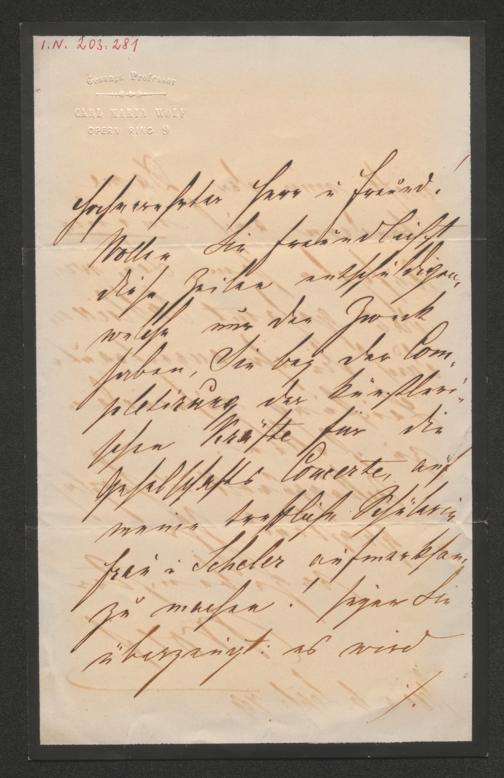 I.N. 203.281
Gesangs Professor
CARL MARIA WOLF
OPERN RING 9
Hochverehrter Herr u Freund!
Wollen Sie freundlichst
diese Zeilen entschuldigen,
welche nur den Zweck
haben, Sie bey der Com-
pletirung der künstleri-
schen Kräfte für die
Gesellschafts Concerte, auf
meine treffliche Schülerin
Frau v Scheler aufmerksam
zu machen! Seyen Sie
überzeugt: es wird
./.